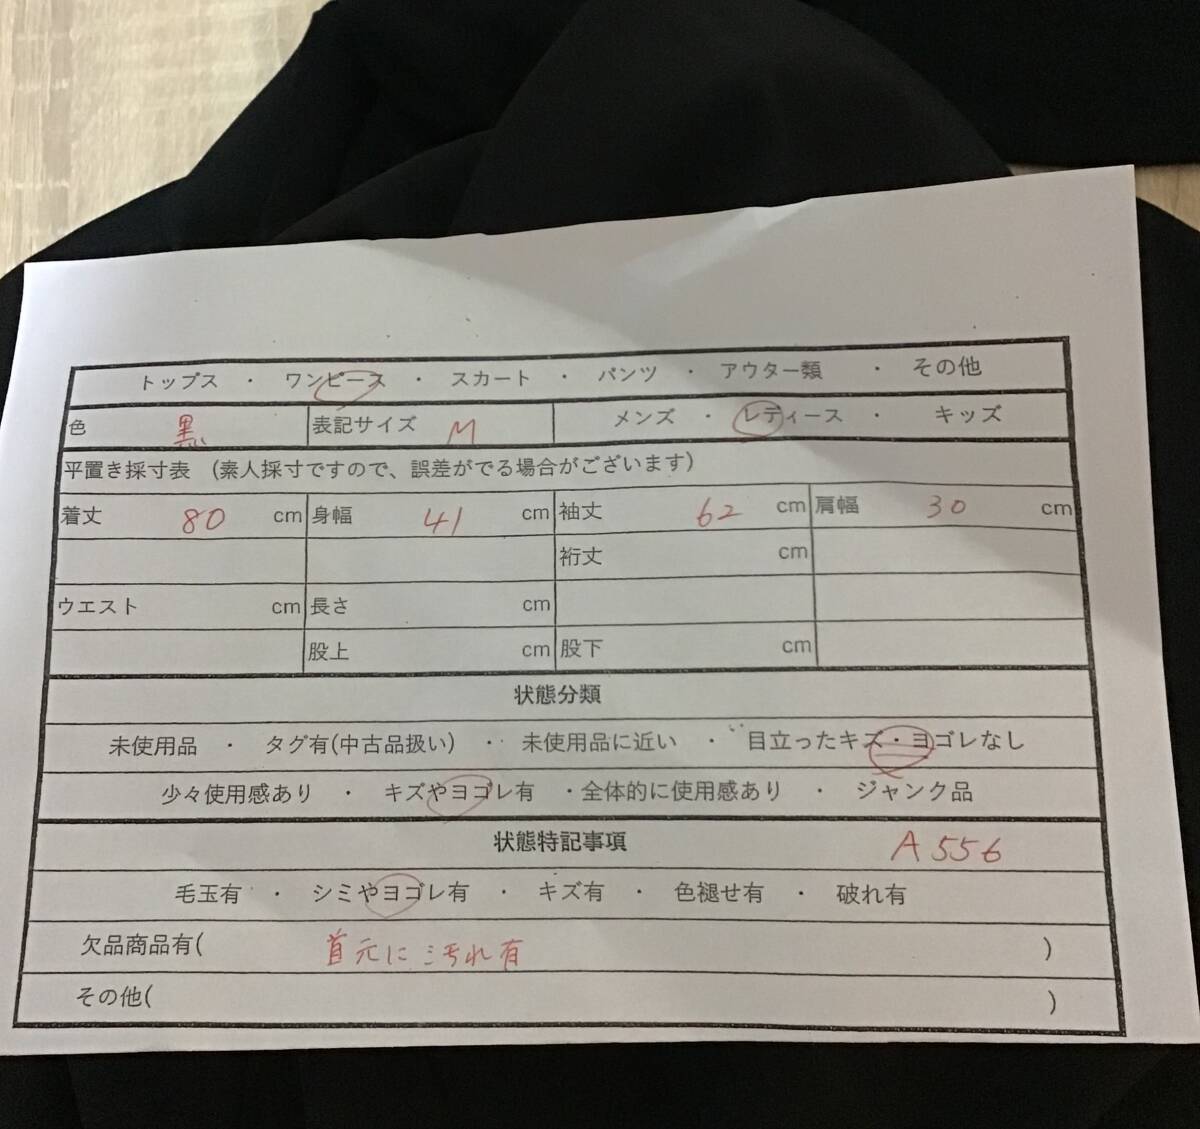 トップス ・ ワンピース ・ スカート ・ パンツ ・ アウター類 ・ その他
色 黒 表記サイズ M メンズ ・ レディース ・ キッズ
平置き採寸表 (素人採寸ですので、誤差がでる場合がございます)
着丈 80 cm 身幅 41 cm 袖丈 62 cm 肩幅 30 cm
裄丈 cm
ウエスト cm 長さ cm
股上 cm 股下 cm
状態分類
未使用品 ・ タグ有(中古品扱い) ・ 未使用品に近い ・ 目立ったキズ・ヨゴレなし
少々使用感あり ・ キズやヨゴレ有 ・全体的に使用感あり ・ ジャンク品
状態特記事項 A556
毛玉有 ・ シミやヨゴレ有 ・ キズ有 ・ 色褪せ有 ・ 破れ有
欠品商品有( 首元に汚れ有 )
その他( )